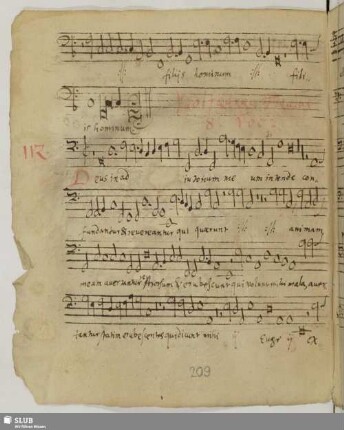 filijs hominum fili
is hominum
112
Deus in ad iutorium me um intende con
fundantur & reuereantur qui quaerunt animam
meam auertantur retrorsum & erubescant qui volunt mihi mala, auer
tantur statim erubescentes qui dicunt mihi Euge ij ex
209
SLUB
Wir führen Wissen.